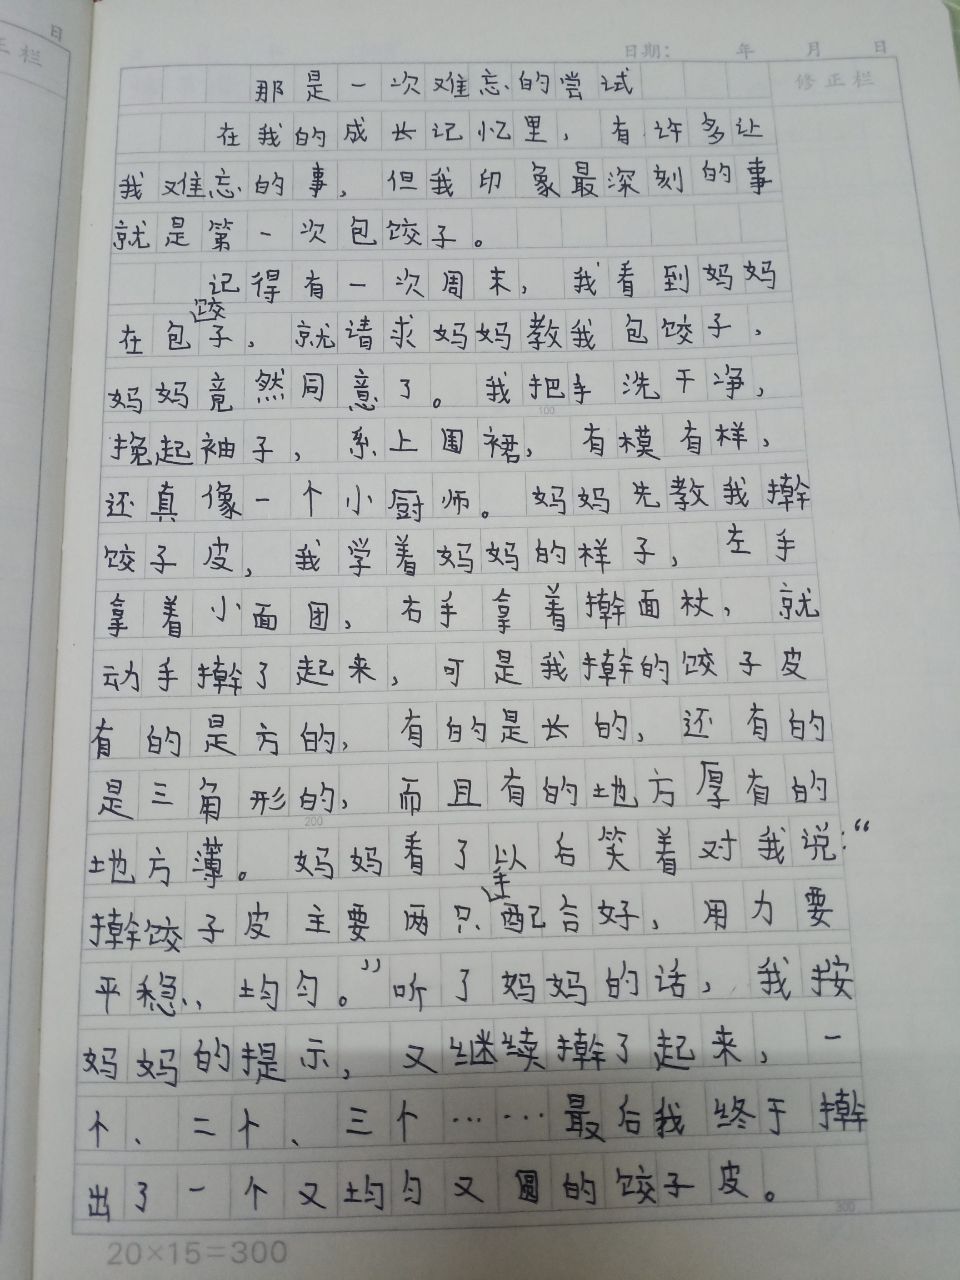 日
正栏
日期： 年 月 日
修正栏
那是一次难忘的尝试
在我的成长记忆里，有许多让
我难忘的事，但我印象最深刻的事
就是第一次包饺子。
记得有一次周末，我看到妈妈
在包饺子，就请求妈妈教我包饺子，
妈妈竟然同意了。我把手洗干净，
100
挽起袖子，系上围裙，有模有样，
还真像一个小厨师。妈妈先教我擀
饺子皮，我学着妈妈的样子，左手
拿着小面团，右手拿着擀面杖，就
动手擀了起来，可是我擀的饺子皮
有的是方的，有的是长的，还有的
是三角形的，而且有的地方厚有的
200
地方薄。妈妈看了以后笑着对我说：“
擀饺子皮主要两只手配合好，用力要
平稳、均匀。”听了妈妈的话，我按
妈妈的提示，又继续擀了起来，一
个、二个、三个……最后我终于擀
出了一个又均匀又圆的饺子皮。
300
20×15=300